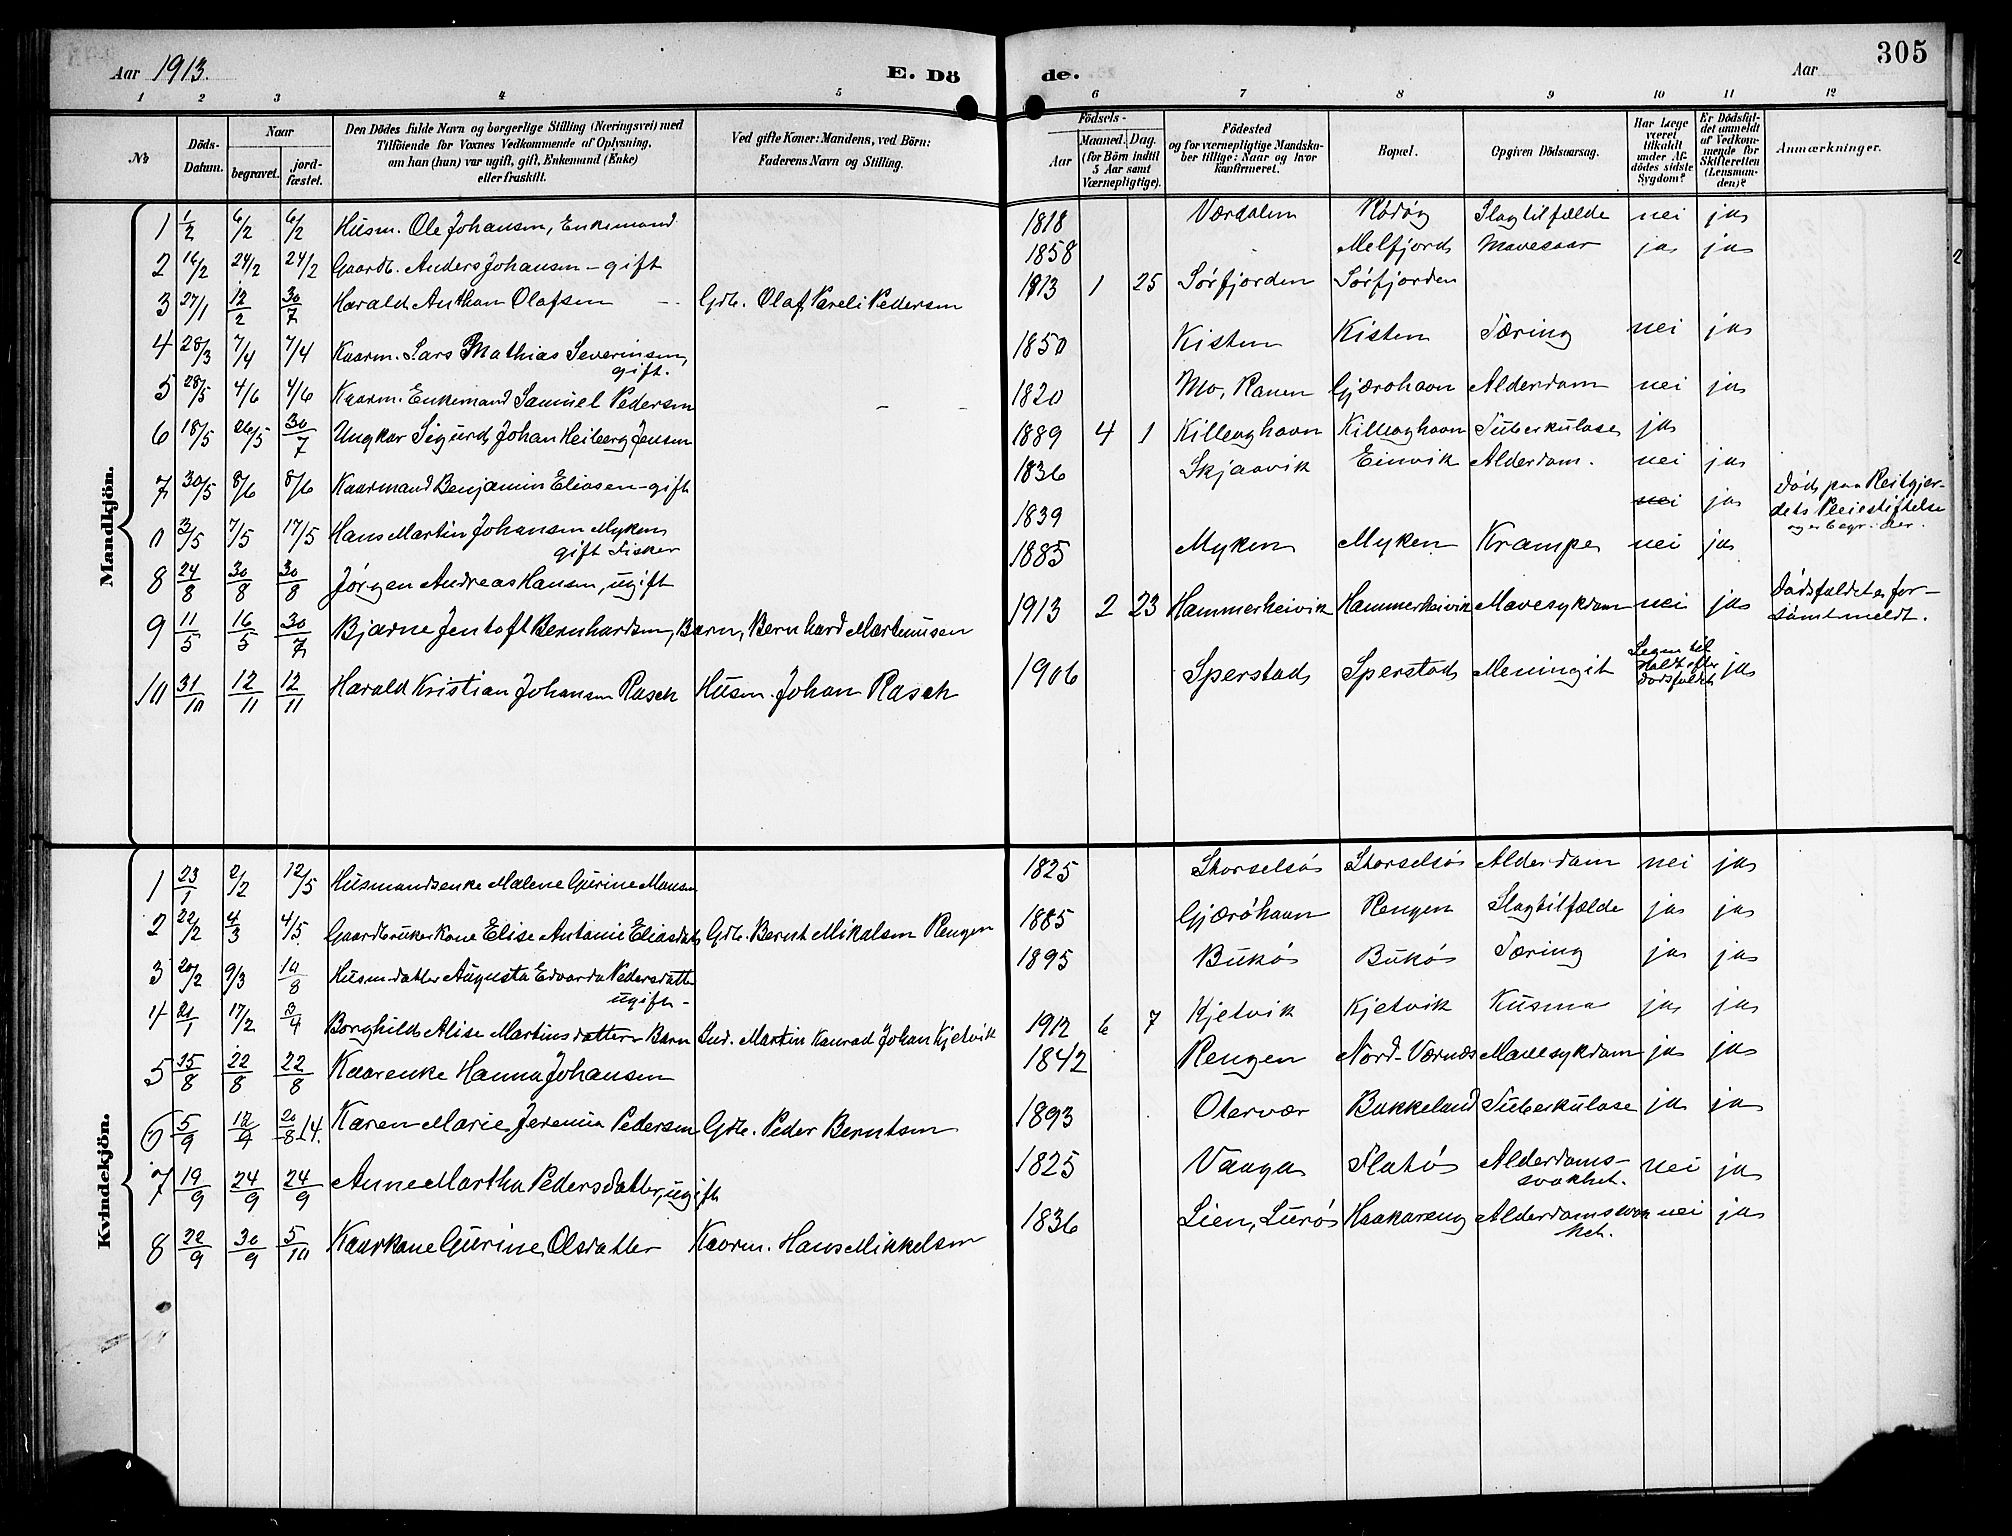 Aar 1913. E. Dö de. Aar 305
1 2 3 4 5 6 7 8 9 10 11 12
No
Döds-Datum.
Naar
begravet.
jord-fæstet.
Den Dödes fulde Navn og borgerlige Stilling (Næringsvei) med
Tilföiende for Voxnes Vedkommende af Oplysning,
om han (hun) var ugift, gift, Enkemand (Enke)
eller fraskilt.
Ved gifte Koner: Mandens, ved Börn:
Faderens Navn og Stilling.
Födsels-
Aar
Maaned. Dag.
(for Börn indtil
5 Aar samt
Værnepligtige).
Födested
og for værnepligtige Mandska-
ber tillige: Naar og hvor
konfirmeret.
Bopæl.
Opgiven Dödsaarsag.
Har Læge
været
tilkaldt
under Af-
dödes sidste
Sygdom?
Er Dödsfal-
det anmeldt
af Vedkom-
mende for
Skifteretten
(Lensman-
den)?
Anmærkninger.
Mandkjön.
1 1/2 6/2 6/2 Husm. Ole Johansen, Enkemand 1818 Værdalen Rödøy Slagtilfælde nei ja
2 16/2 24/2 24/2 Gaardb. Anders Johansen - gift 1858 Melfjord Mavesaar ja ja
3 27/1 12/2 30/7 Harald Anthon Olafsen Gdb. Olaf Pareli Pedersen 1913 1 25 Sørfjorden Sørfjorden
4 28/3 7/4 7/4 Kaarm. Lars Mathias Severinsen, 1850 Kisten Kisten Tæring nei ja
gift.
5 28/5 4/6 4/6 Kaarm. Enkemand Samuel Pedersen 1820 Mo, Ranen Gjærøhavn Alderdom nei ja
6 18/5 26/5 30/7 Ungkar Sigurd Johan Heiberg Jensen 1889 4 1 Killeoghavn Killeoghavn Tuberkulose ja
7 30/5 8/6 8/6 Kaarmand Benjamin Eliasen - gift 1836 Skjaavik Einvik Alderdom. nei ja
0 3/5 7/5 17/5 Hans Martin Johansen Myken 1839 nei ja Död paa Reitgjer-
gift Fisker
dets Pleiestiftelse
og er begr. der.
8 24/8 30/8 30/8 Jørgen Andreas Hansen, ugift 1885 Myken Myken Krampe nei ja
9 11/5 16/5 30/7 Bjarne Jentoft Bernhardsen, Barn, Bernhard Marthinusen 1913 2 23 Hammerheivik Hammerheivik Mavesykdom nei ja Dödsfaldet er for-
sømt meldt.
10 31/10 12/11 12/11 Harald Kristian Johansen Rasch Husm. Johan Rasch 1906 Sperstad Sperstad Meningit Legen til
kaldt efter
dødsfaldet ja
Kvindekjön.
1 23/1 2/2 12/5 Husmandsenke Malene Gurine Monsen 1825 Storselsö Storselsö Alderdom nei ja
2 22/2 4/3 4/5 Gaardbrukerkone Elise Antonie Eliasdatter Gdb. Bernt Mikalsen Rengen 1885 Gjæröhavn Rengen Slagtilfælde ja ja
3 20/2 9/3 10/8 Husm.datter Augusta Edvarda Pedersdatter 1895 Bukö Bukö Tæring ja ja
ugift -
4 21/1 17/2 3/4 Borghild Alise Martinsdatter Barn Ind. Martin Konrad Johan Kjetvik 1912 6 7 Kjetvik Kjetvik Kusma ja ja
5 15/8 22/8 22/8 Kaarenke Hanna Johansen 1842 Rengen Nord-Værnes Mavesykdom ja ja
6 5/9 12/9 20/8 14. Karen Marie Jeremia Pedersen Gdb. Peder Berntsen 1893 Otervær Bakkeland Tuberkulose ja ja
7 19/9 24/9 24/9 Anne Martha Pedersdatter, ugift 1825 Vaaga Flatö Alderdoms- nei ja
svakhet.
8 22/9 30/9 5/10 Kaarkone Gurine Olsdatter Kaarm. Hans Mikkelsen 1836 Lien, Lurö Haakareng Alderdomsvak nei ja
het.